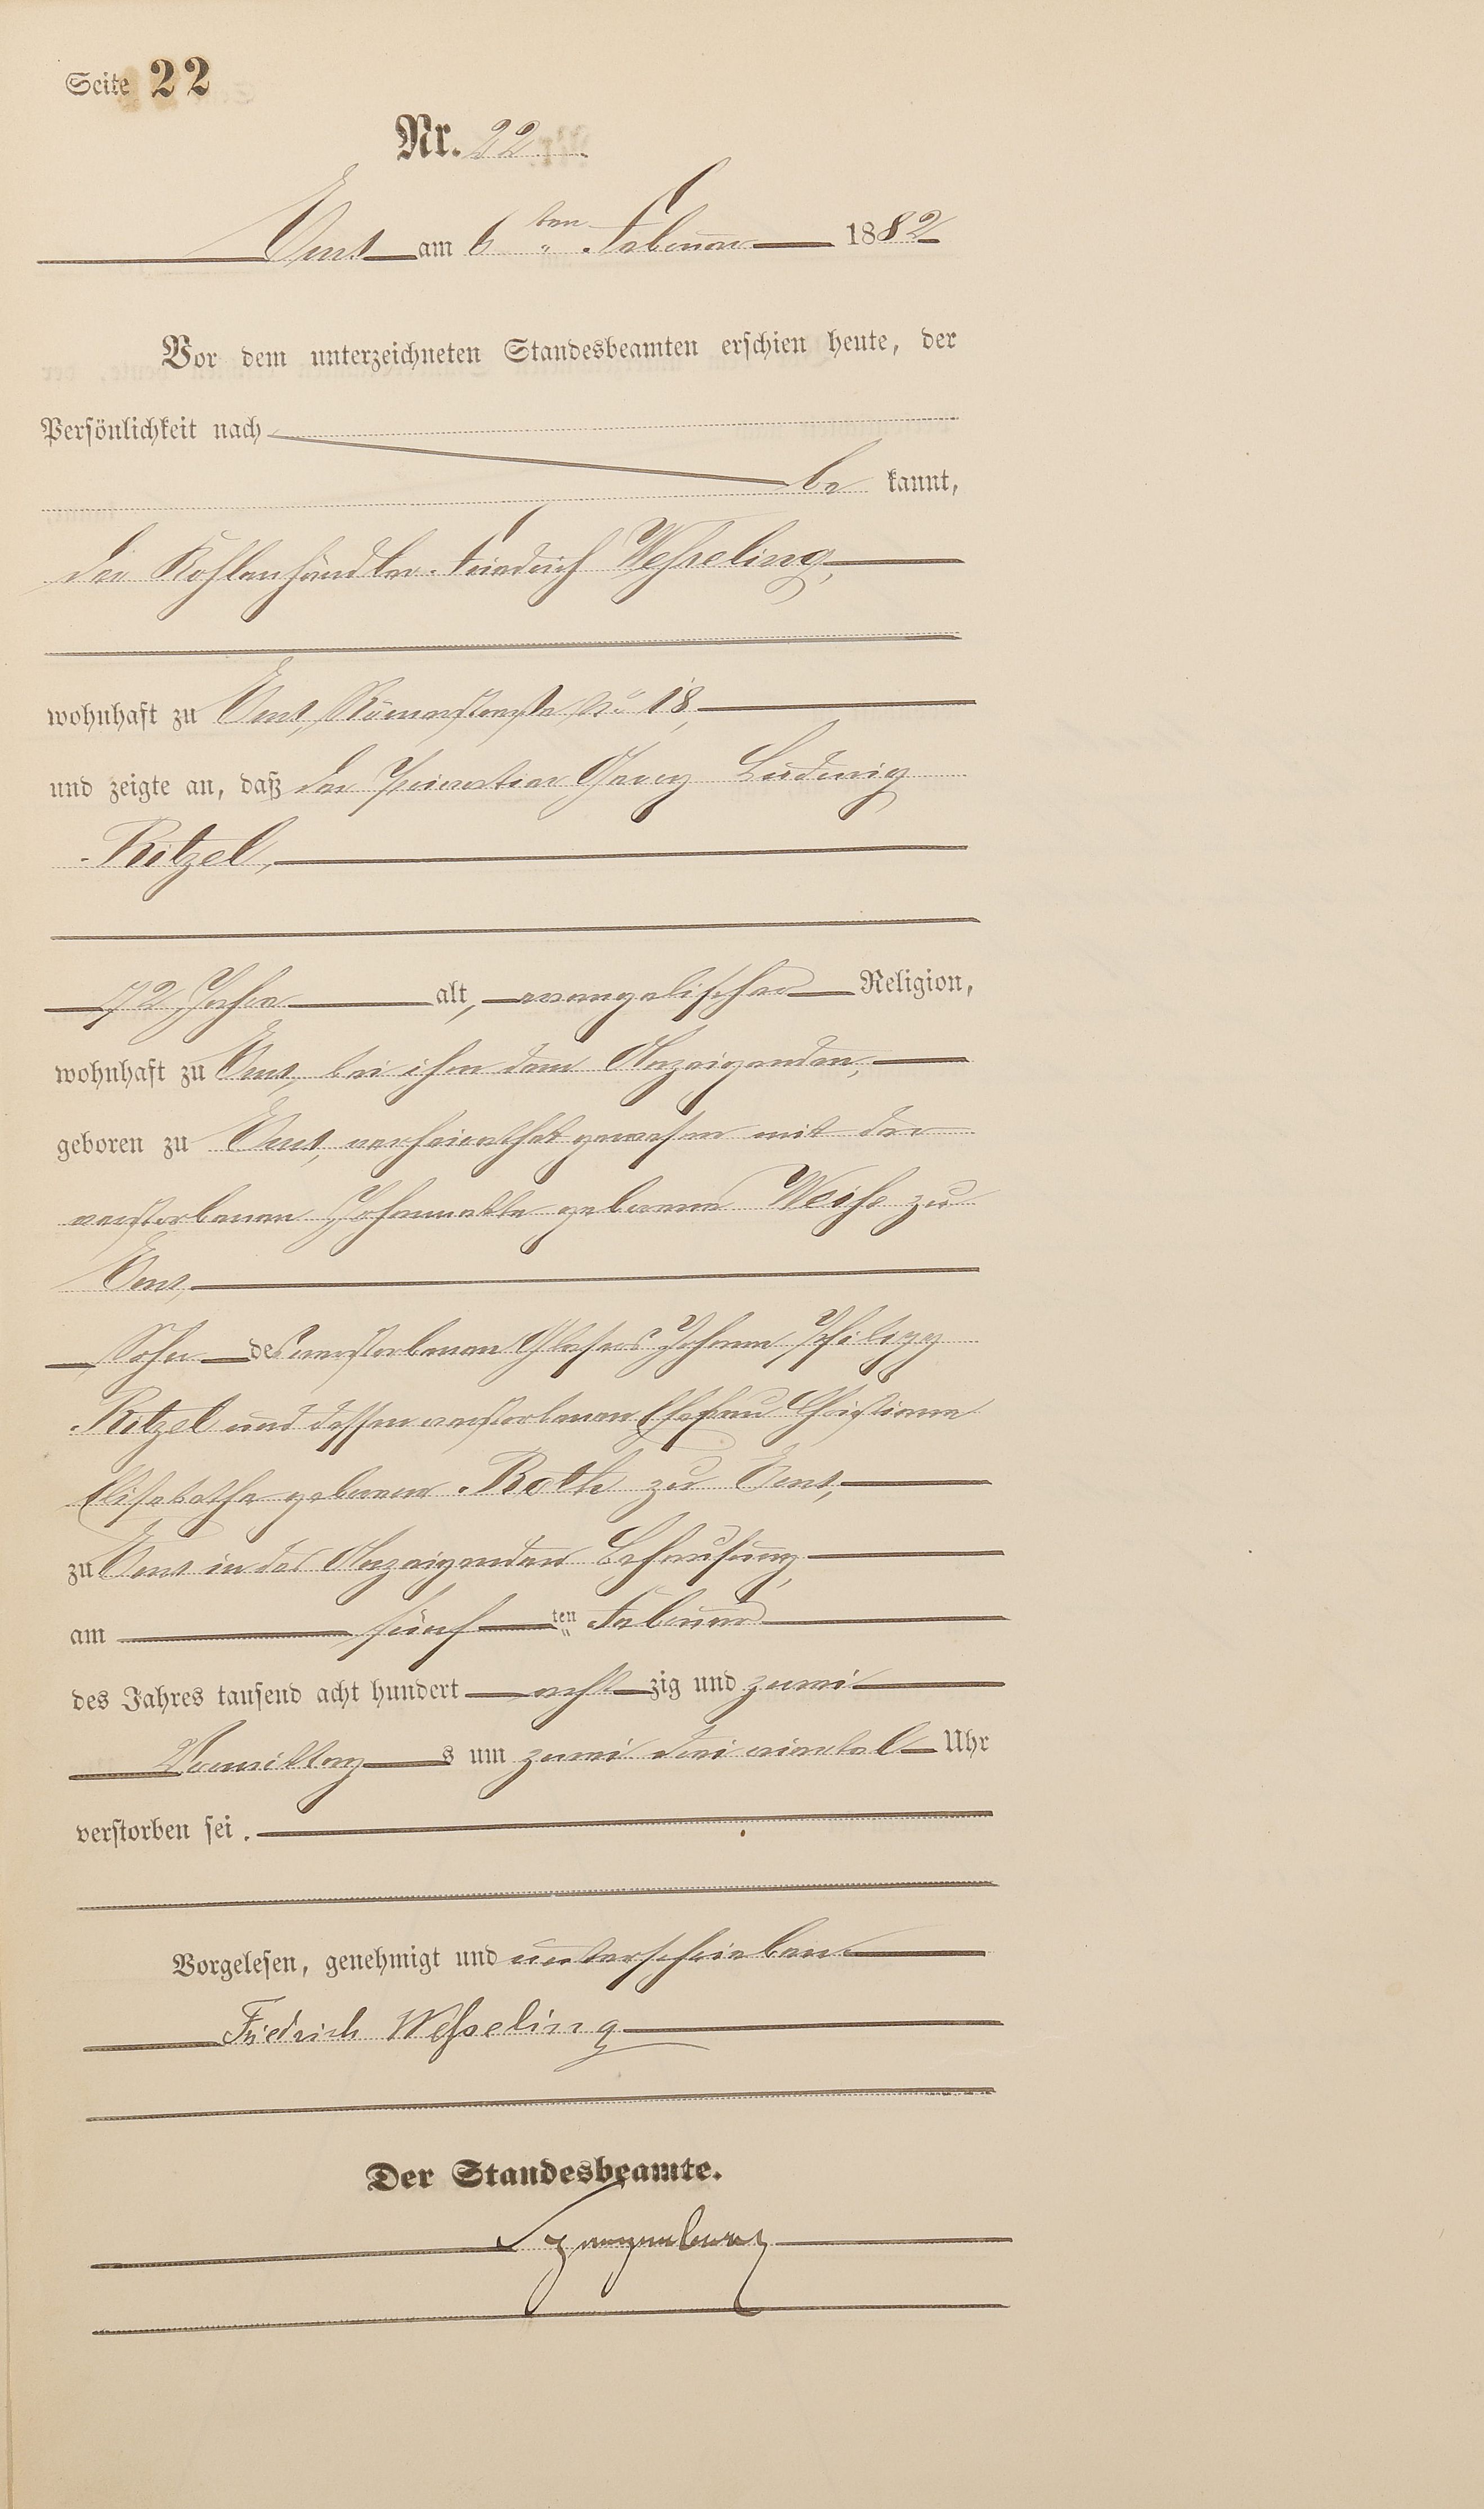 Seite 22
Nr. 22
Ems am 6 ten Februar 1882
Vor dem unterzeichneten Standesbeamten erschien heute, der
Persönlichkeit nach
be kannt,
der Kohlenhändler Friedrich Weßeling,
wohnhaft zu Ems, Römerstraße No 18,
und zeigte an, daß der Privatier Georg Ludwig
Ritzel,
72 Jahre alt, evangelischer Religion,
wohnhaft zu Ems, bei ihm dem Anzeigenden,
geboren zu Ems, verheirathet gewesen mit der
verstorbenen geborene Weiß zu
Ems,
Sohn des verstorbenen Glasers Johann Philipp
Ritzel und dessen verstorbenen Ehefrau Christiane
Elisabetha geborene Roth zu Ems,
zu Ems in des Anzeigenden Behausung,
am fünf ten Februar
des Jahres tausend acht hundert acht zig und zwei
Vormittag s um zwei drei viertel Uhr
verstorben sei.
Vorgelesen, genehmigt und unterschrieben
Friedrich Weßeling
Der Standesbeamte.
Spangenberg